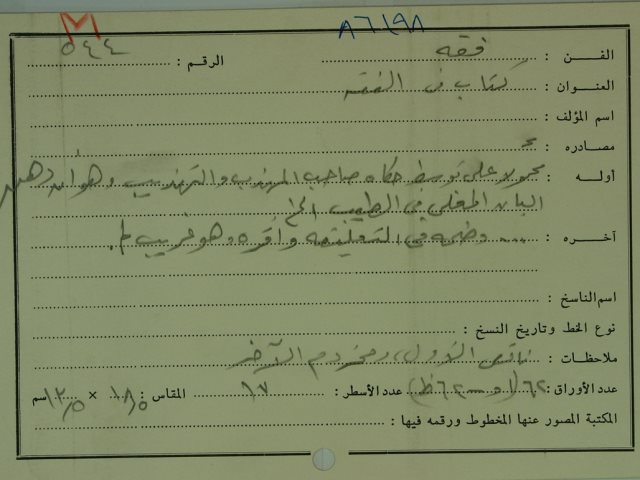 ٨٦١٩٨
الفـــن : فقه الرقـم : ٥٤٤
العنـوان : كتاب في الفقه
اسم المؤلف :
مصـادره :
أولـه : محمولا على توسط حكاه صاحب المهذب والتهذيب وهو أن دهن
البان المغلي في الطيب الخ
آخـره : .... وضمه في التعليقة وأقره، وهو غريب
اسم الناسخ :
نوع الخط وتاريخ النسخ :
ملاحظات : ناقص الأول، ومخروم الآخر
عدد الأوراق : ٦٢ (١و – ٦٢ظ) عدد الأسطر : ١٧ المقاس : ١٨٫٥ × ١٣٫٥ سم
المكتبة المصور عنها المخطوط ورقمه فيها :